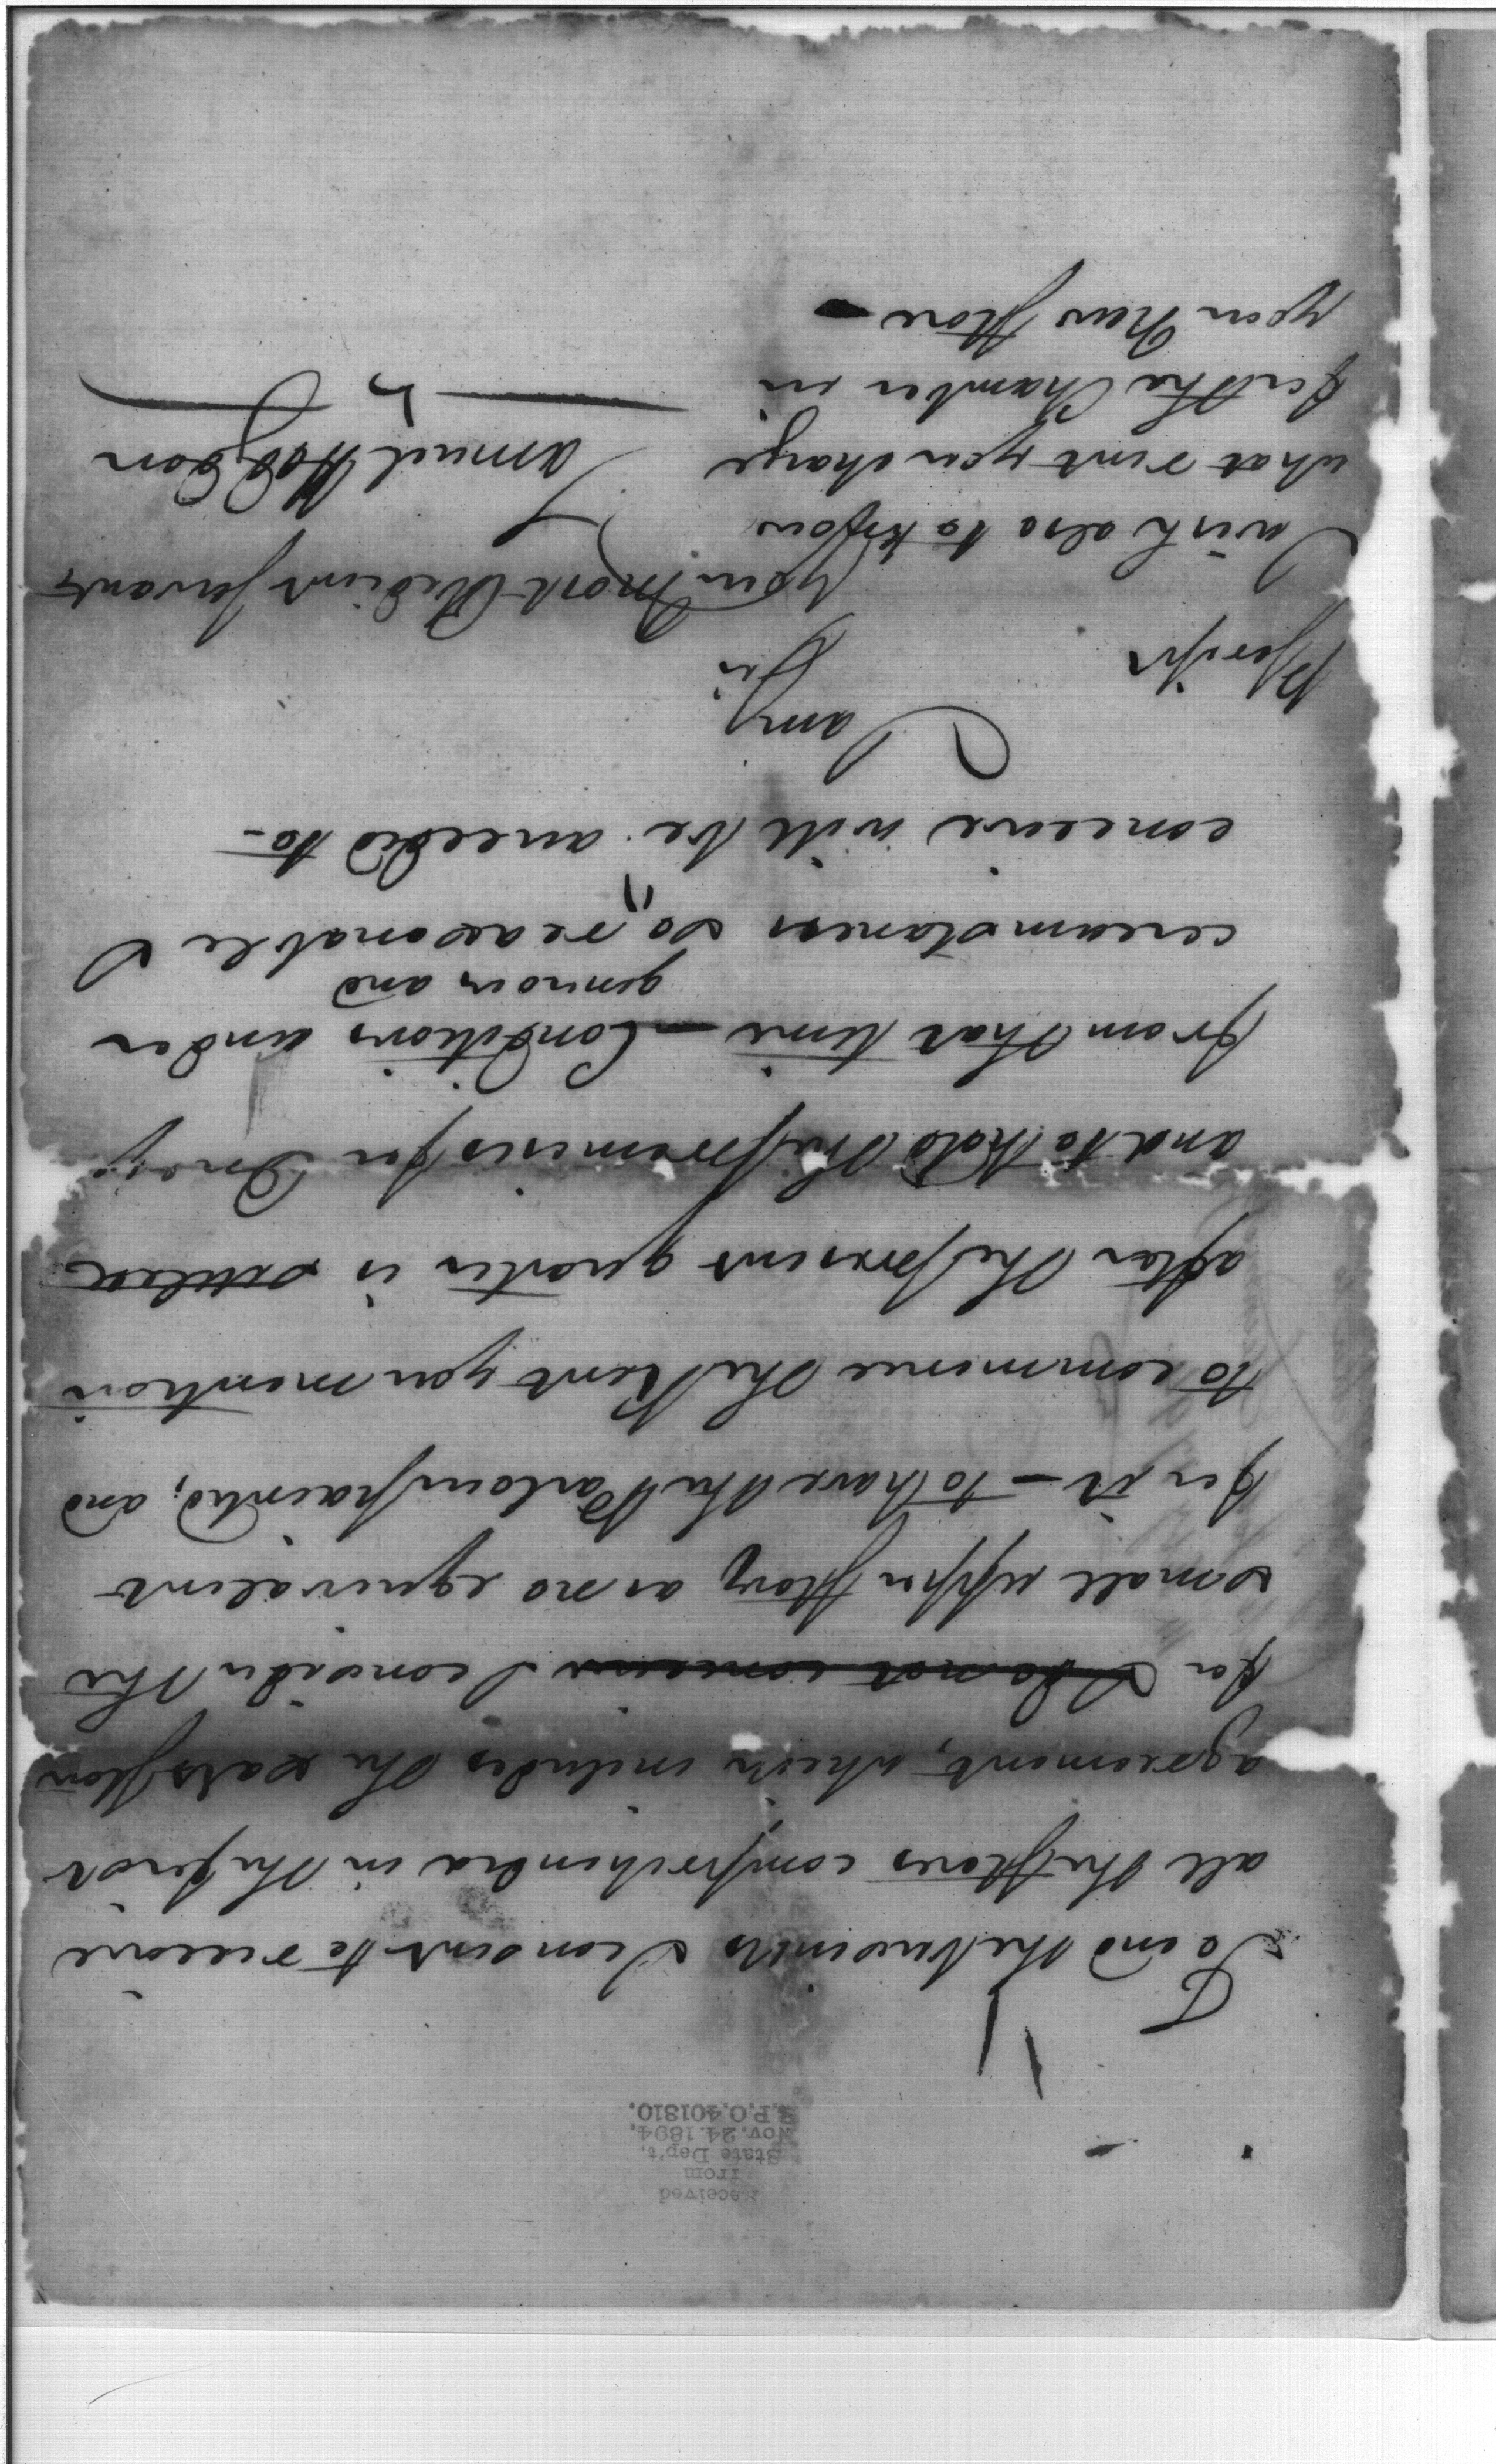 Received
from
State Dep't,
Nov. 24. 1894,
R.P.O. 401810.
To end the business I consent to receive
all the stores comprehended in the first
agreement, which includes the salt store
for I do not conceive I consider the
small upper story as no equivalent
for it — to have the Parlour painted; and
to commence the Rent you mention
after the present quarter is settled
and to Hold the premises for One yr
from that time — Conditions under
generous and
circumstances so reasonable I
conceive will be acceeded to —
I am
Sir
Your Most Obedient Servant
Samuel Hodgdon
I wish also to know
what rent you charge
for the Chamber in
your New Store —